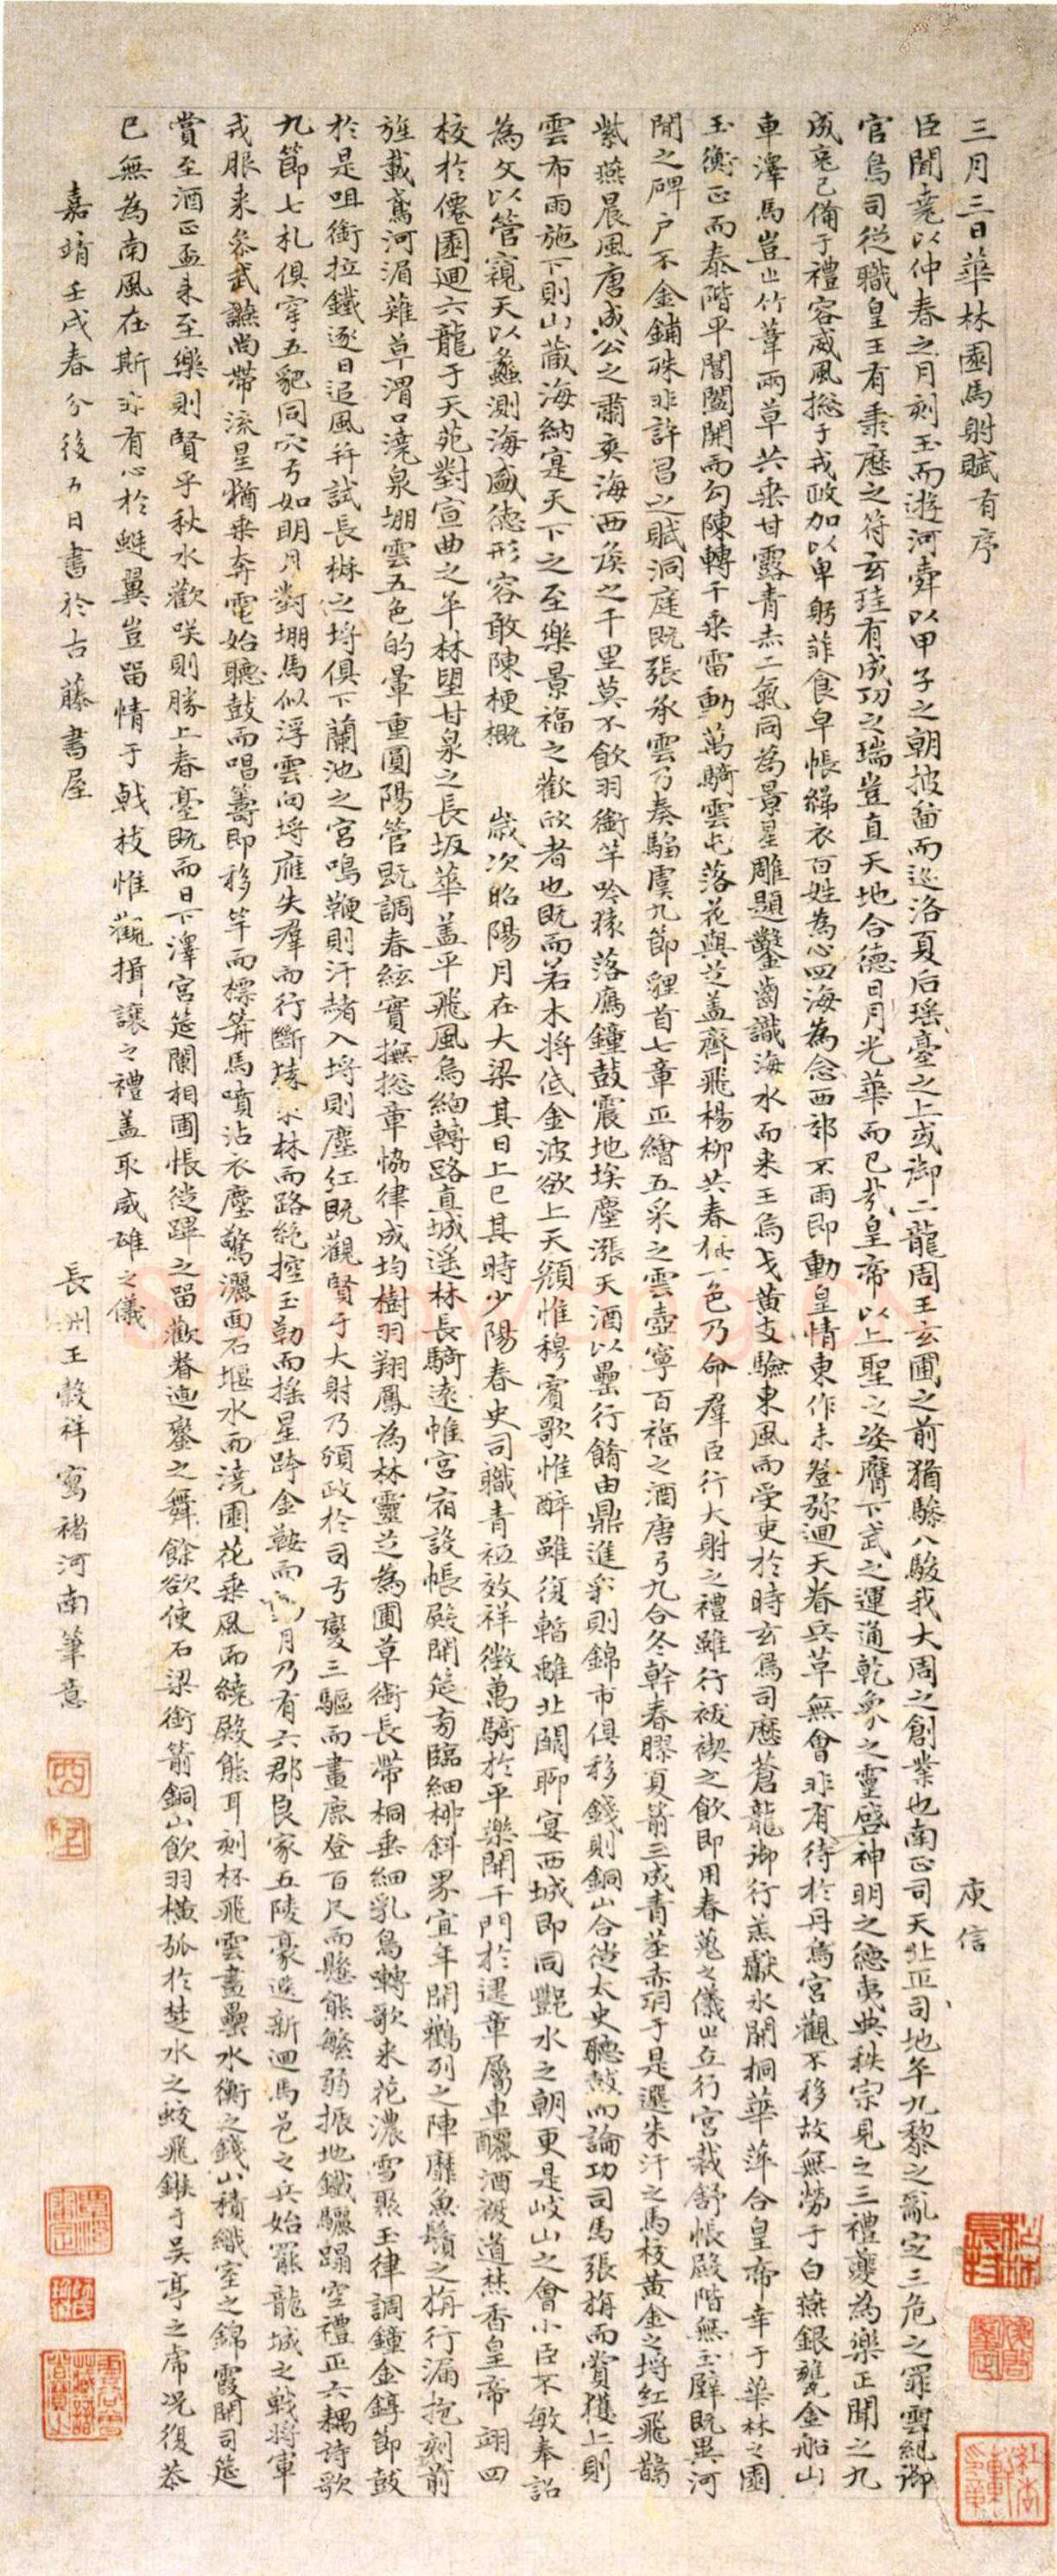 三月三日華林園馬射賦有序 庾信
臣聞堯以仲春之月刻玉而遊河舜以甲子之朝披圖而巡洛夏后瑤臺之上或御二龍周王玄圃之前猶驂八駿我大周之創業也南正司天北正司地平九黎之亂定三危之罪雲紀御
官鳥司從職皇王有秉曆之符玄珪有成功之瑞豈直天地合德日月光華而已哉皇帝以上聖之姿膺下武之運通乾象之靈啟神明之德夷典秩宗見之三禮夔為樂正聞之九
成克己備于禮容威風揔于戎政加以卑躬菲食皁帳綈衣百姓為心四海為念西郊不雨即動皇情東作未登弥迴天眷兵革無會非有待於丹烏宮觀不移故無勞于白燕銀甕金船山
車澤馬豈止竹葦兩草共乘甘露青赤二氣同為景星雕題鑿齒識海水而来王烏弋黃支驗東風而受吏於時玄鳥司曆蒼龍御行羔獻氷開桐華萍合皇帝幸于華林之園
玉衡正而泰階平閶闔開而勾陳轉千乘雷動萬騎雲屯落花與芝蓋齊飛楊柳共春旗一色乃命羣臣行大射之禮雖行祓禊之飲即用春蒐之儀止立行宮裁舒帳殿階無玉璧既異河
間之碑户不金鋪殊非許昌之賦洞庭既張承雲乃奏騶虞九節貍首七章正繪五采之雲壺寧百福之酒唐弓九合冬幹春膠夏箭三成青莖赤羽于是選朱汗之馬校黃金之埒紅飛鵲
紫燕晨風唐成公之肅爽海西侯之千里莫不飲羽銜竿吟猨落鴈鐘鼓震地埃塵漲天酒以罍行餚由鼎進彩則錦市俱移錢則銅山合徙太史聽鼓而論功司馬張旃而賞獲上則
雲布雨施下則山藏海納寔天下之至樂景福之歡欣者也既而若木將低金波欲上天顏惟穆賓歌惟醉雖復暫離北闕聊宴西城即同酆水之朝更是岐山之會小臣不敏奉詔
為文以管窺天以蠡測海盛德形容敢陳梗概 歲次昭陽月在大梁其日上巳其時少陽春史司職青祇效祥徵萬騎於平樂開千門於建章屬車釃酒複道焚香皇帝翊四
校於僊園迴六龍于天苑對宣曲之平林望甘泉之長坂華蓋平飛風烏細轉路直城遥林長騎遠帷宮宿設帳殿開筵旁臨細柳斜界宜年開鸛列之陣靡魚鬚之旃行漏抱刻前
旌載鳶河湄薙草渭口澆泉堋雲五色的暈重圓陽管既調春絃實撫揔章協律成均樹羽翔鳳為林靈芝為圃草銜長帶桐垂細乳鳥囀歌来花濃雪聚玉律調鐘金錞節鼓
於是咀銜拉鐵逐日追風幷試長楸之埒俱下蘭池之宮鳴鞭則汗赭入埒則塵紅既觀賢于大射乃頒政於司弓變三驅而畫鹿登百尺而懸熊繁弱振地鐵驪蹋空禮正六耦詩歌
九節七札俱穿五豝同穴弓如明月對堋馬似浮雲向埒雁失羣而行斷猨求林而路絶控玉勒而搖星跨金鞍而動月乃有六郡良家五陵豪選新迴馬邑之兵始罷龍城之戰將軍
戎服来參武讌尚帶流星猶乘奔電始聽鼓而唱籌即移竿而標箭馬噴沾衣塵驚灑面石堰水而澆園花乘風而繞殿熊耳刻杯飛雲畫罍水衡之錢山積織室之錦霞開司筵
賞至酒正盃来至樂則賢乎秋水歡咲則勝上春臺既而日下澤宮筵闌相圃悵從蹕之留歡眷迴鑾之舞餘欲使石梁銜箭銅山飲羽橫弧於楚水之蛟飛鏃于吴亭之虎况復恭
已無為南風在斯非有心於蜓翼豈留情于戟枝惟觀揖讓之禮蓋取威雄之儀
嘉靖壬戌春分後五日書於古藤書屋 長洲王穀祥寫褚河南筆意